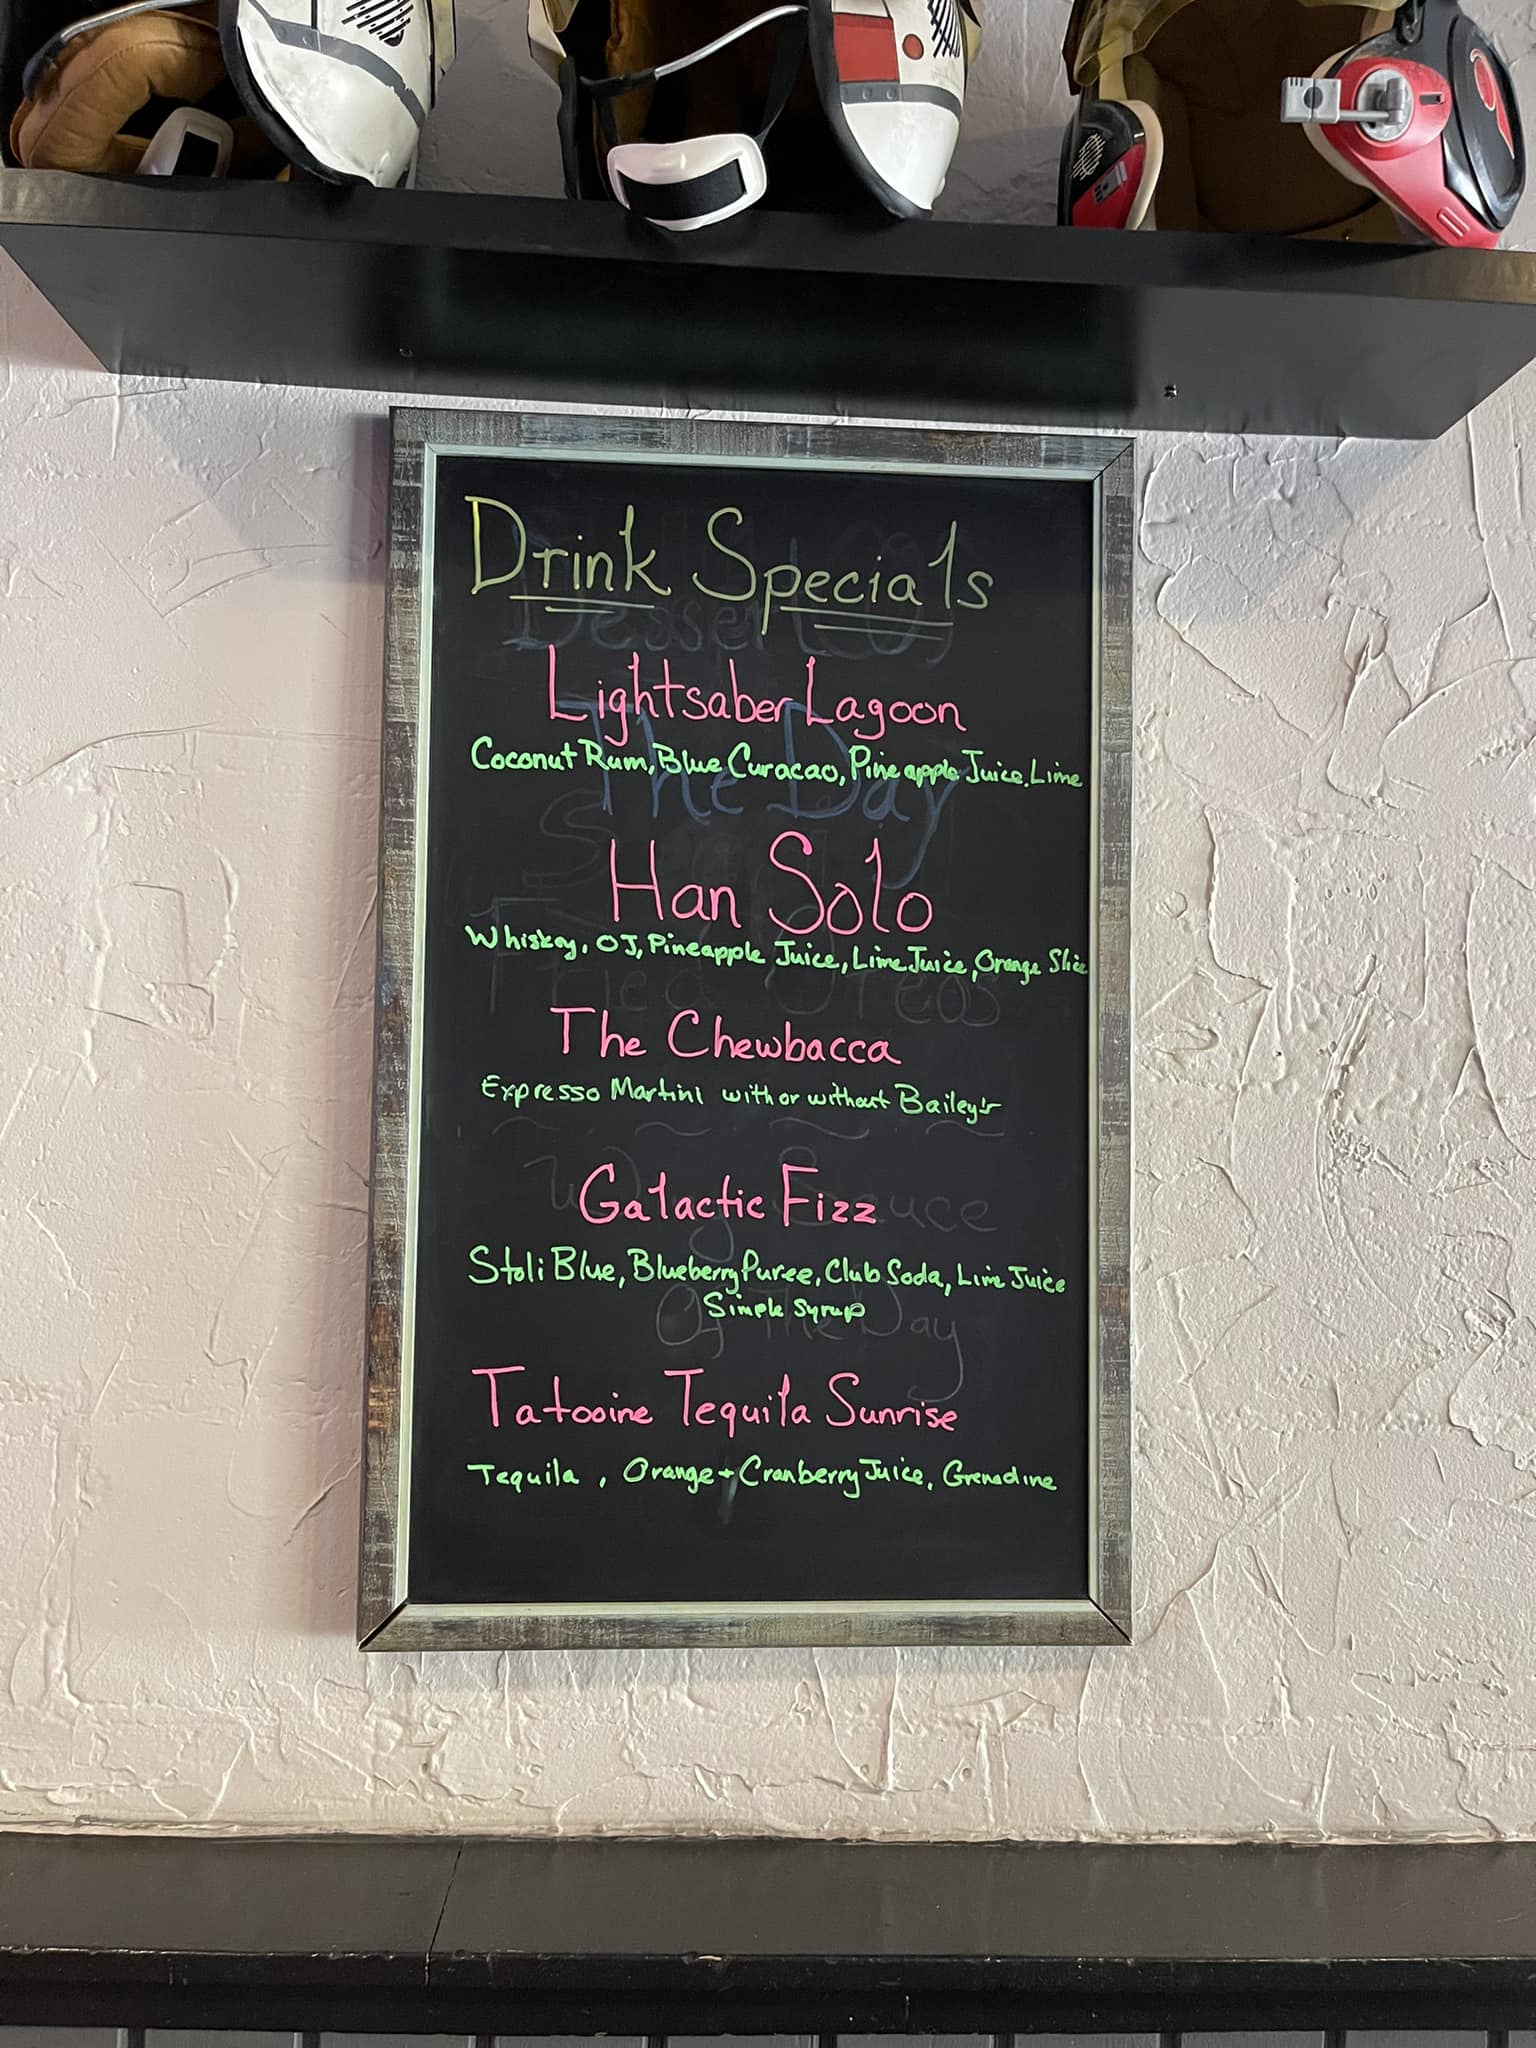 Drink Specials
Lightsaber Lagoon
Coconut Rum, Blue Curacao, Pineapple Juice, Lime
Han Solo
Whiskey, OJ, Pineapple Juice, Lime Juice, Orange Slice
The Chewbacca
Expresso Martini with or without Bailey's
Galactic Fizz
Stoli Blue, Blueberry Puree, Club Soda, Lime Juice
Simple Syrup
Tatooine Tequila Sunrise
Tequila, Orange + Cranberry Juice, Grenadine
Dessert Of
The Day
Fried Oreos
Wing Sauce
Of The Day